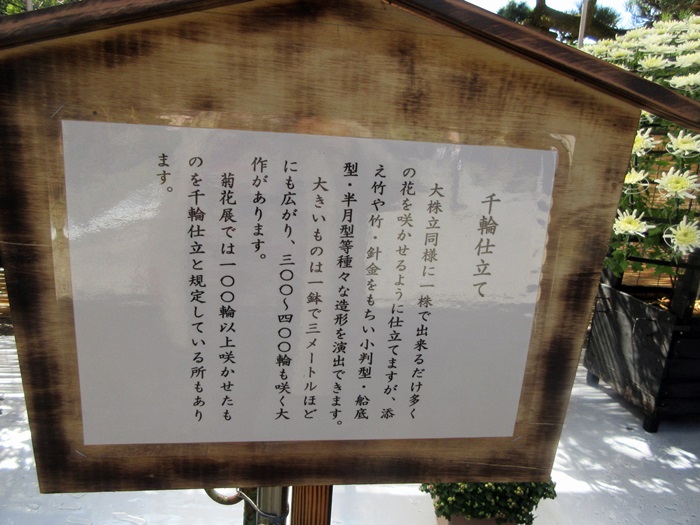 千輪仕立て
大株立同様に一株で出来るだけ多く
の花を咲かせるように仕立てますが、添
え竹や竹・針金をもちい小判型・船底
型・半月型等種々な造形を演出できます。
大きいものは一鉢で三メートルほど
にも広がり、三〇〇～四〇〇輪も咲く大
作があります。
菊花展では一〇〇輪以上咲かせたも
のを千輪仕立と規定している所もあり
ます。